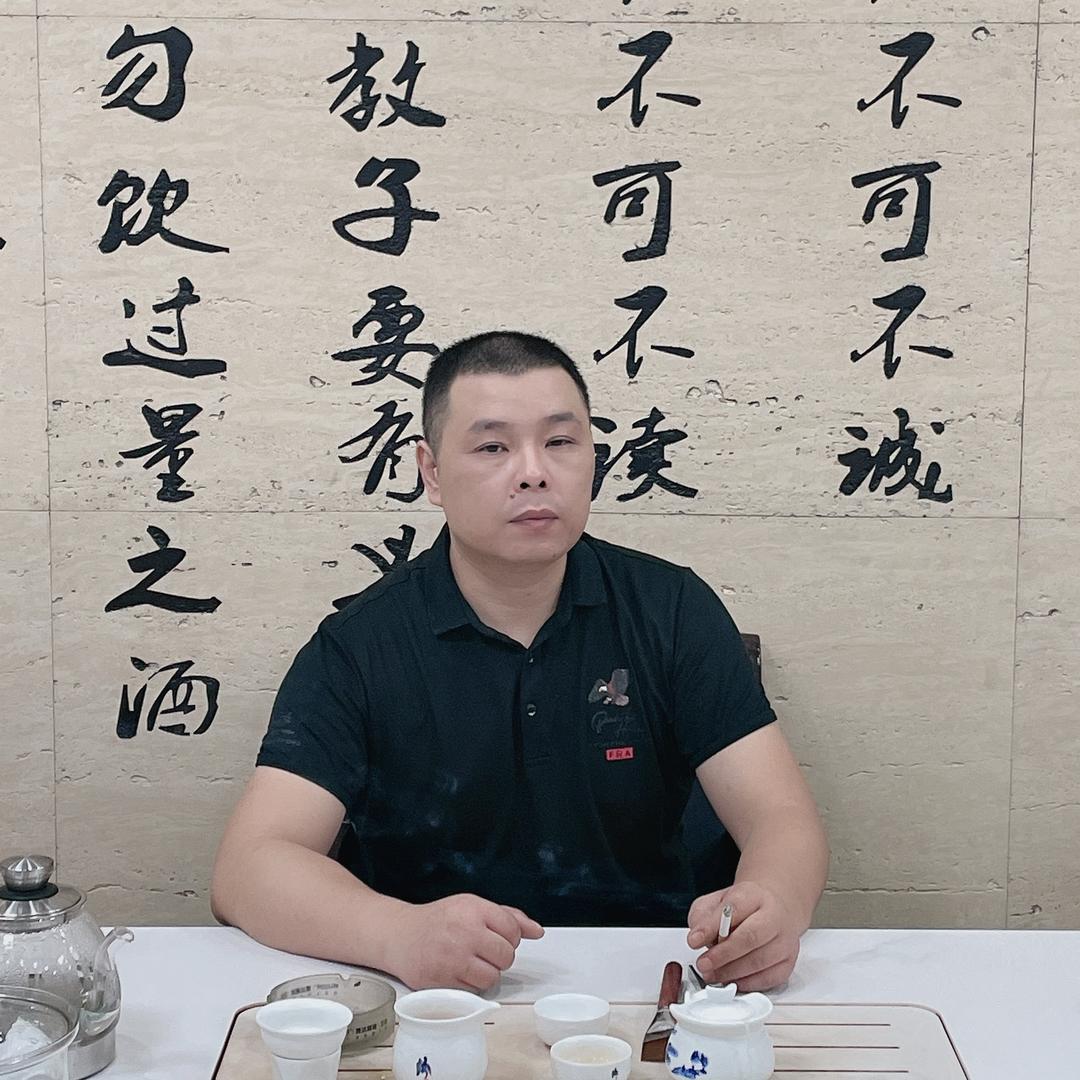 不可不诚
不可不读
教子要有
勿饮过量之酒
FRA